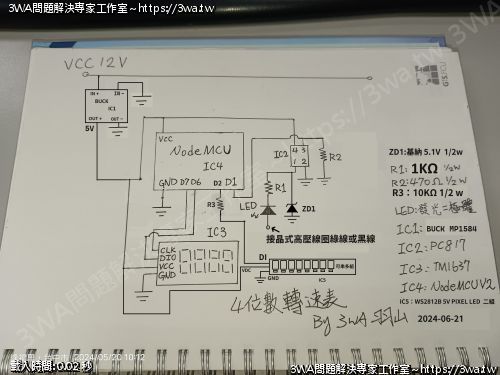 3WA問題解決專家工作室~https://3wa.tw
3WA問題解決專家工作室~https://3wa.tw
VCC 12V
IN +
IN -
BUCK
IC1
OUT +
OUT -
5V
VCC
NodeMCU
IC4
GND D7 D6
D2 D1
IC2
4 3
1 2
R2
R1
R3
LED
ZD1
接晶式高壓線圈綠線或黑線
IC3
CLK
DIO
VCC
GND
DI
VDC
GND
IC5
可串多組
ZD1:基納 5.1V 1/2w
R1: 1KΩ 1/2w
R2: 470Ω 1/2w
R3:10KΩ 1/2 w
LED:發光二極體
IC1: BUCK MP1584
IC2: PC817
IC3: TM1637
IC4: NodeMCU V2
IC5:WS2812B 5V PIXEL LED 二組
4位數轉速表
By 3WA 羽山
2024-06-21
2024/05/20 10:12
載入時間:0.02秒
3WA問題解決專家工作室~https://3wa.tw